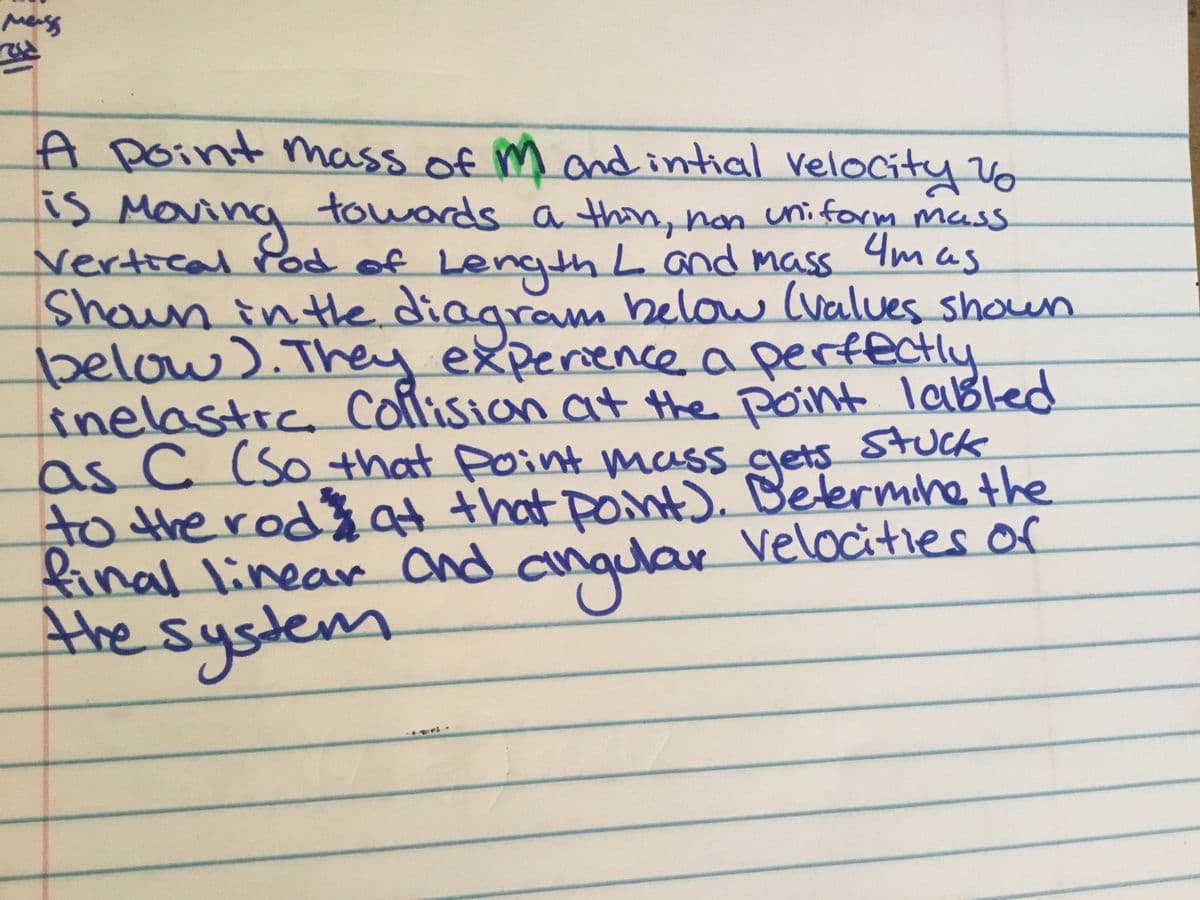 Mass
A point mass of M and intial velocity v0
is Moving towards a thin, non uniform mass
vertical rod of Length L and mass 4m as
Shown in the diagram below (values shown
below). They experience a perfectly
inelastic Collision at the point labled
as C (So that point mass gets stuck
to the rod at that point). Determine the
final linear and angular velocities of
the system